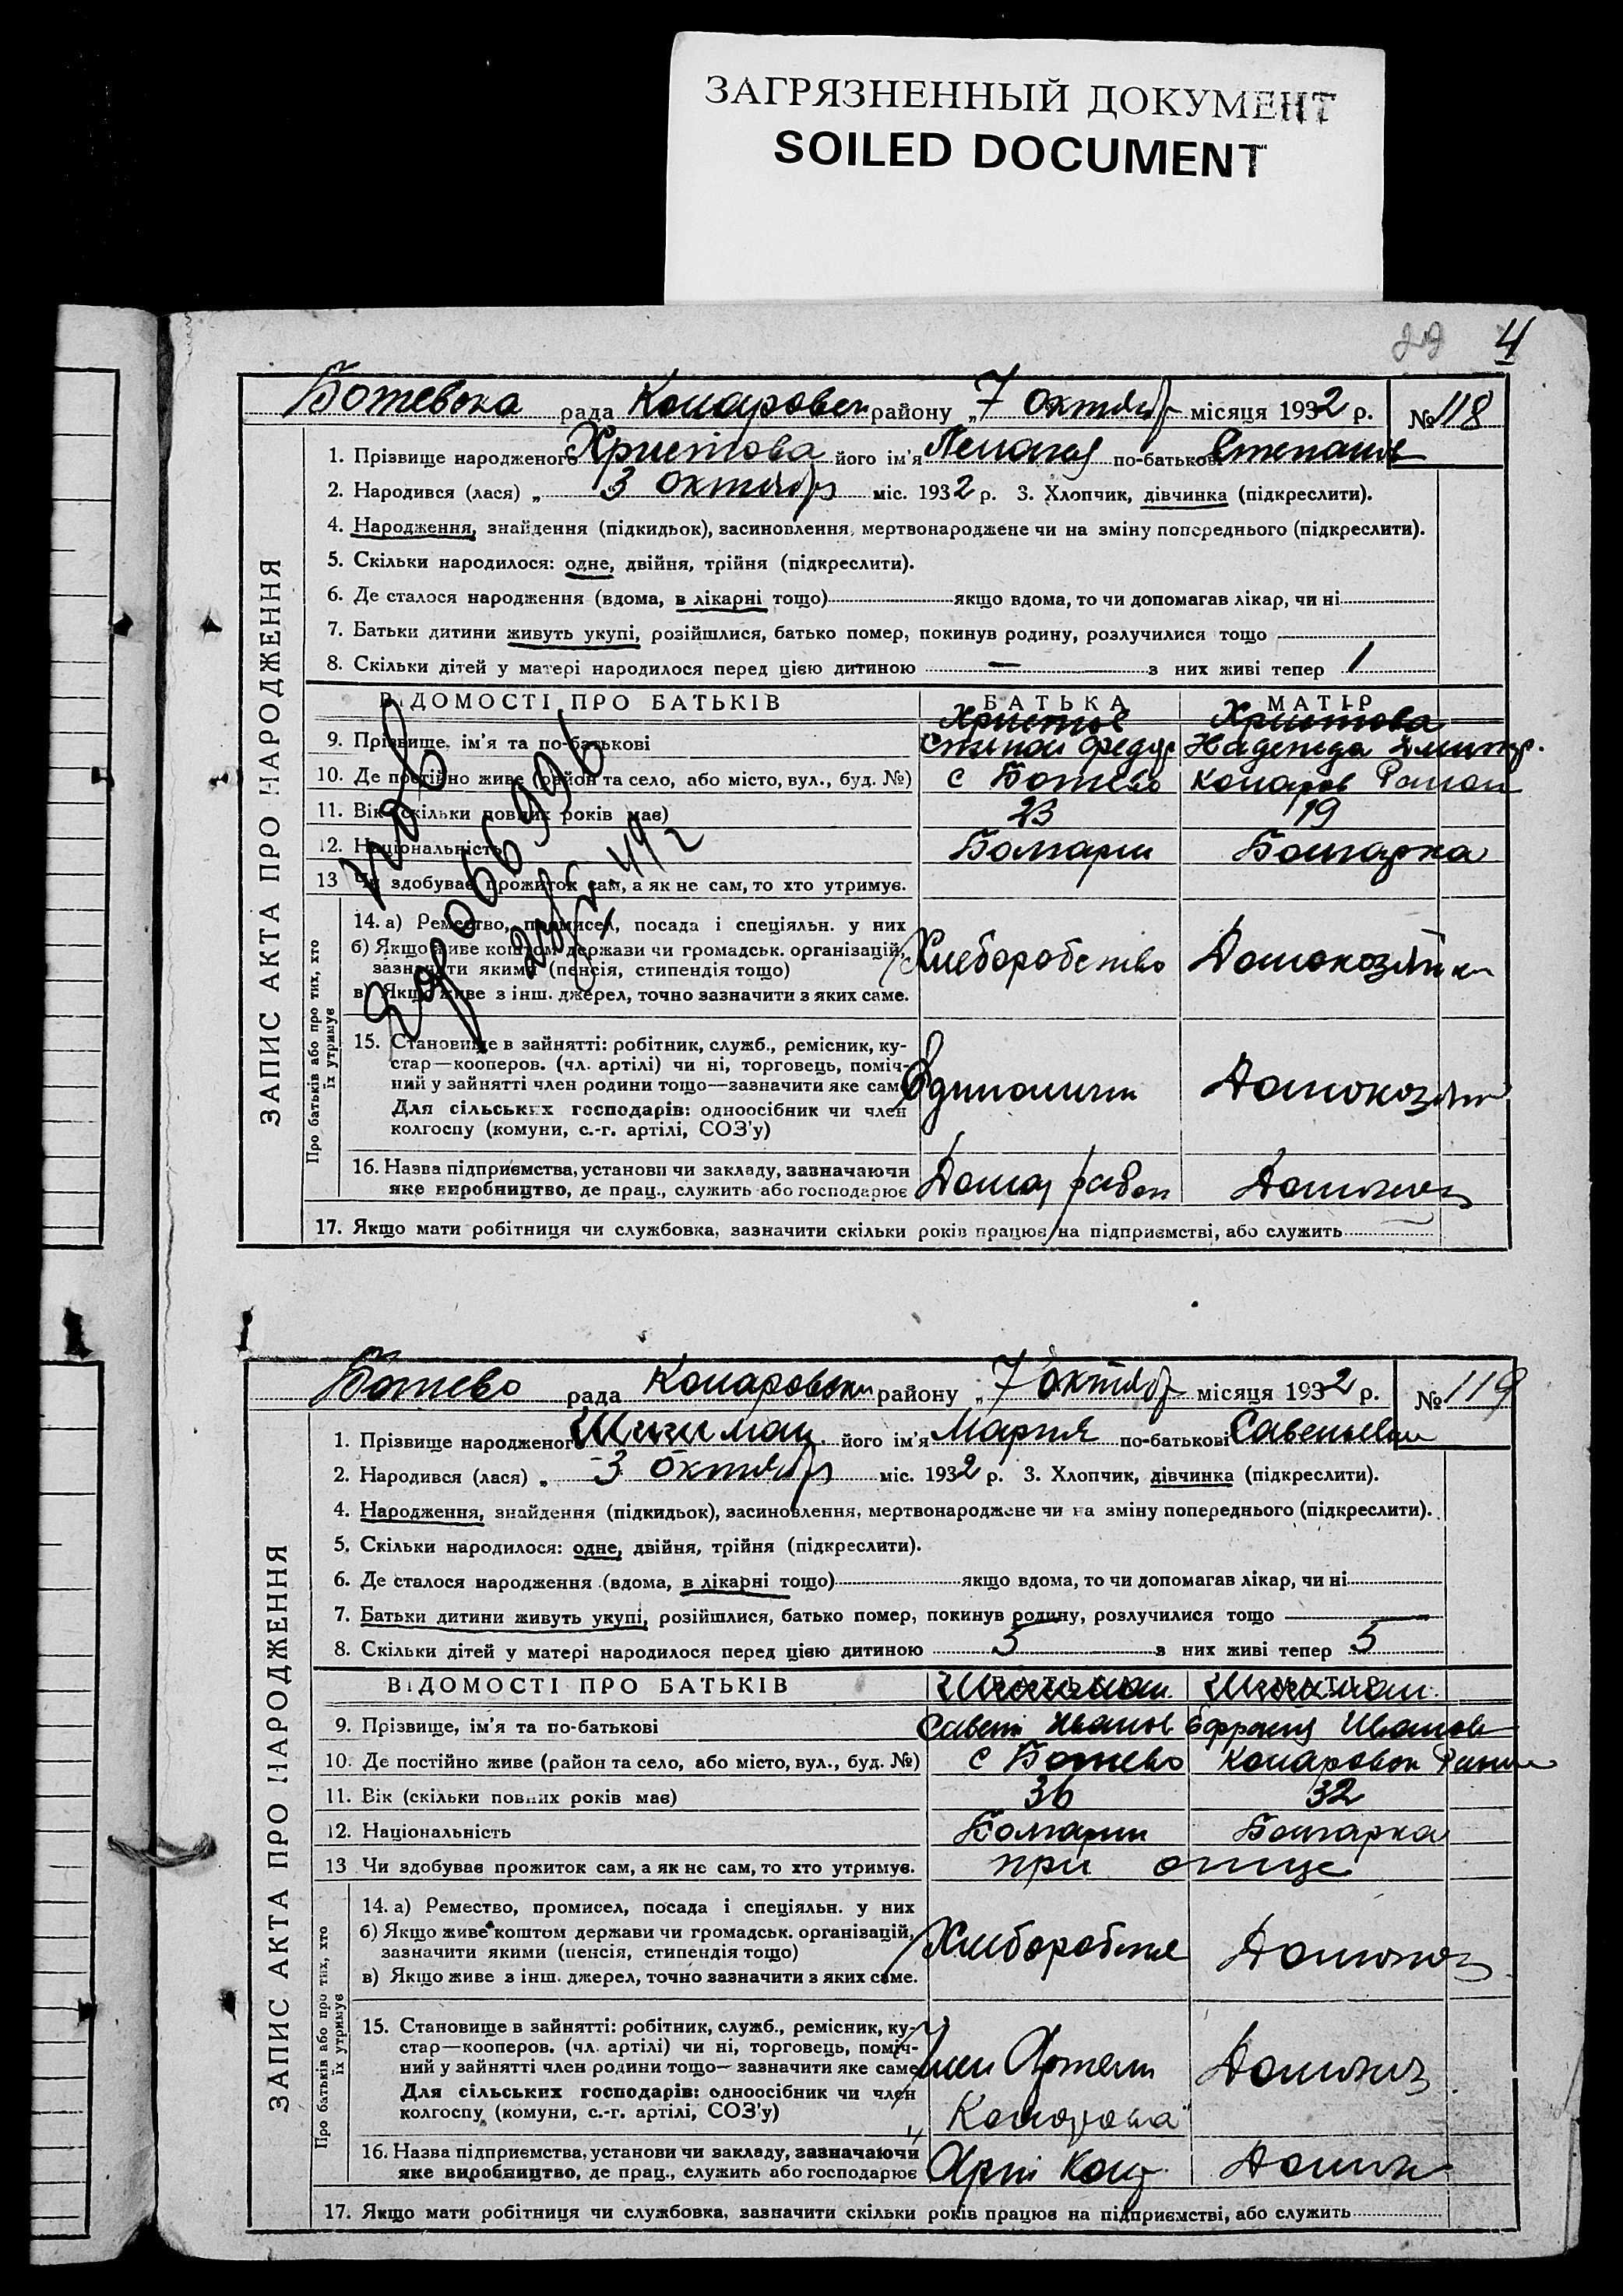 ЗАГРЯЗНЕННЫЙ ДОКУМЕНТ
SOILED DOCUMENT
4
Ботевска рада Комаровск району „7 Октябр місяця 1932 р. № 118
ЗАПИС АКТА ПРО НАРОДЖЕННЯ
1. Прізвище народженого Христова його ім'я по-батькові Степанов
2. Народився (лася) „ 3 Октябр міс. 1932 р. 3. Хлопчик, дівчинка (підкреслити).
4. Народження, знайдення (підкидьок), засиновлення, мертвонароджене чи на зміну попереднього (підкреслити).
5. Скільки народилося: одне, двійня, трійня (підкреслити).
6. Де сталося народження (вдома, в лікарні тощо) якщо вдома, то чи допомагав лікар, чи ні
7. Батьки дитини живуть укупі, розійшлися, батько помер, покинув родину, розлучилися тощо
8. Скільки дітей у матері народилося перед цією дитиною — з них живі тепер 1
ВІДОМОСТІ ПРО БАТЬКІВ БАТЬКА МАТІР
Христов Христова
9. Прізвище, ім'я та по-батькові Степан Федор Надежда Дмитр.
10. Де постійно живе (район та село, або місто, вул., буд. №) с Ботево Комаров Район
11. Вік (скільки повних років має) 23 19
12. Національність Болгарин Болгарка
13 Чи здобуває прожиток сам, а як не сам, то хто утримує.
Про батьків або про тих, хто
їх утримує
14. а) Ремество, промисел, посада і спеціяльн. у них
б) Якщо живе коштом держави чи громадськ. організацій,
зазначити якими (пенсія, стипендія тощо) Хлеборобство Домохозяйка
в) Якщо живе з інш. джерел, точно зазначити з яких саме.
15. Становище в зайнятті: робітник, служб., ремісник, ку-
стар—кооперов. (чл. артілі) чи ні, торговець, поміч-
ний у зайнятті член родини тощо—зазначити яке саме Единолич Домохозяй
Для сільських господарів: одноосібник чи член
колгоспу (комуни, с.-г. артілі, СОЗ'у)
16. Назва підприємства, установи чи закладу, зазначаючи
яке виробництво, де прац., служить або господарює Домохоз
17. Якщо мати робітниця чи службовка, зазначити скільки років працює на підприємстві, або служить
Ботево рада Комаровски району „7 октябр місяця 1932 р. № 119
ЗАПИС АКТА ПРО НАРОДЖЕННЯ
1. Прізвище народженог Шишман його ім'я Мария по-батькові Савельевн
2. Народився (лася) „ 3 Октябр міс. 1932 р. 3. Хлопчик, дівчинка (підкреслити).
4. Народження, знайдення (підкидьок), засиновлення, мертвонароджене чи на зміну попереднього (підкреслити).
5. Скільки народилося: одне, двійня, трійня (підкреслити).
6. Де сталося народження (вдома, в лікарні тощо) якщо вдома, то чи допомагав лікар, чи ні
7. Батьки дитини живуть укупі, розійшлися, батько помер, покинув родину, розлучилися тощо —
8. Скільки дітей у матері народилося перед цією дитиною 5 з них живі тепер 5
ВІДОМОСТІ ПРО БАТЬКІВ Шишман Шишман
9. Прізвище, ім'я та по-батькові Савели Иванов Иванов
10. Де постійно живе (район та село, або місто, вул., буд. №) с Ботево Комаровск Район
11. Вік (скільки повних років має) 36 32
12. Національність Болгарин Болгарка
13 Чи здобуває прожиток сам, а як не сам, то хто утримує. при отце
Про батьків або про тих, хто
їх утримує
14. а) Ремество, промисел, посада і спеціяльн. у них
б) Якщо живе коштом держави чи громадськ. організацій,
зазначити якими (пенсія, стипендія тощо) Хлеборобств Домохоз
в) Якщо живе з інш. джерел, точно зазначити з яких саме.
15. Становище в зайнятті: робітник, служб., ремісник, ку-
стар—кооперов. (чл. артілі) чи ні, торговець, поміч-
ний у зайнятті член родини тощо— зазначити яке саме член Артели Домохоз
Для сільських господарів: одноосібник чи член
колгоспу (комуни, с.-г. артілі, СОЗ'у)
16. Назва підприємства, установи чи закладу, зазначаючи
яке виробництво, де прац., служить або господарює
17. Якщо мати робітниця чи службовка, зазначити скільки років працює на підприємстві, або служить